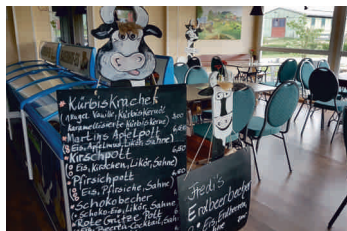 KürbisKracher
1 Kugel Vanille, Kürbiskernöl
karamellisierte Kürbiskerne)
Martins Apfelpott
(Eis, Apfelmus, Likör, Sahne)
Kirschpott
(Eis, Kirschen, Likör, Sahne)
Pfirsichpott
(Eis, Pfirsiche, Sahne)
Schokobecher
(Schoko-Eis, Likör, Sahne)
Rote Grütze Pott
Fredis
Erdbeerbecher
Eis, Erdbeeren,